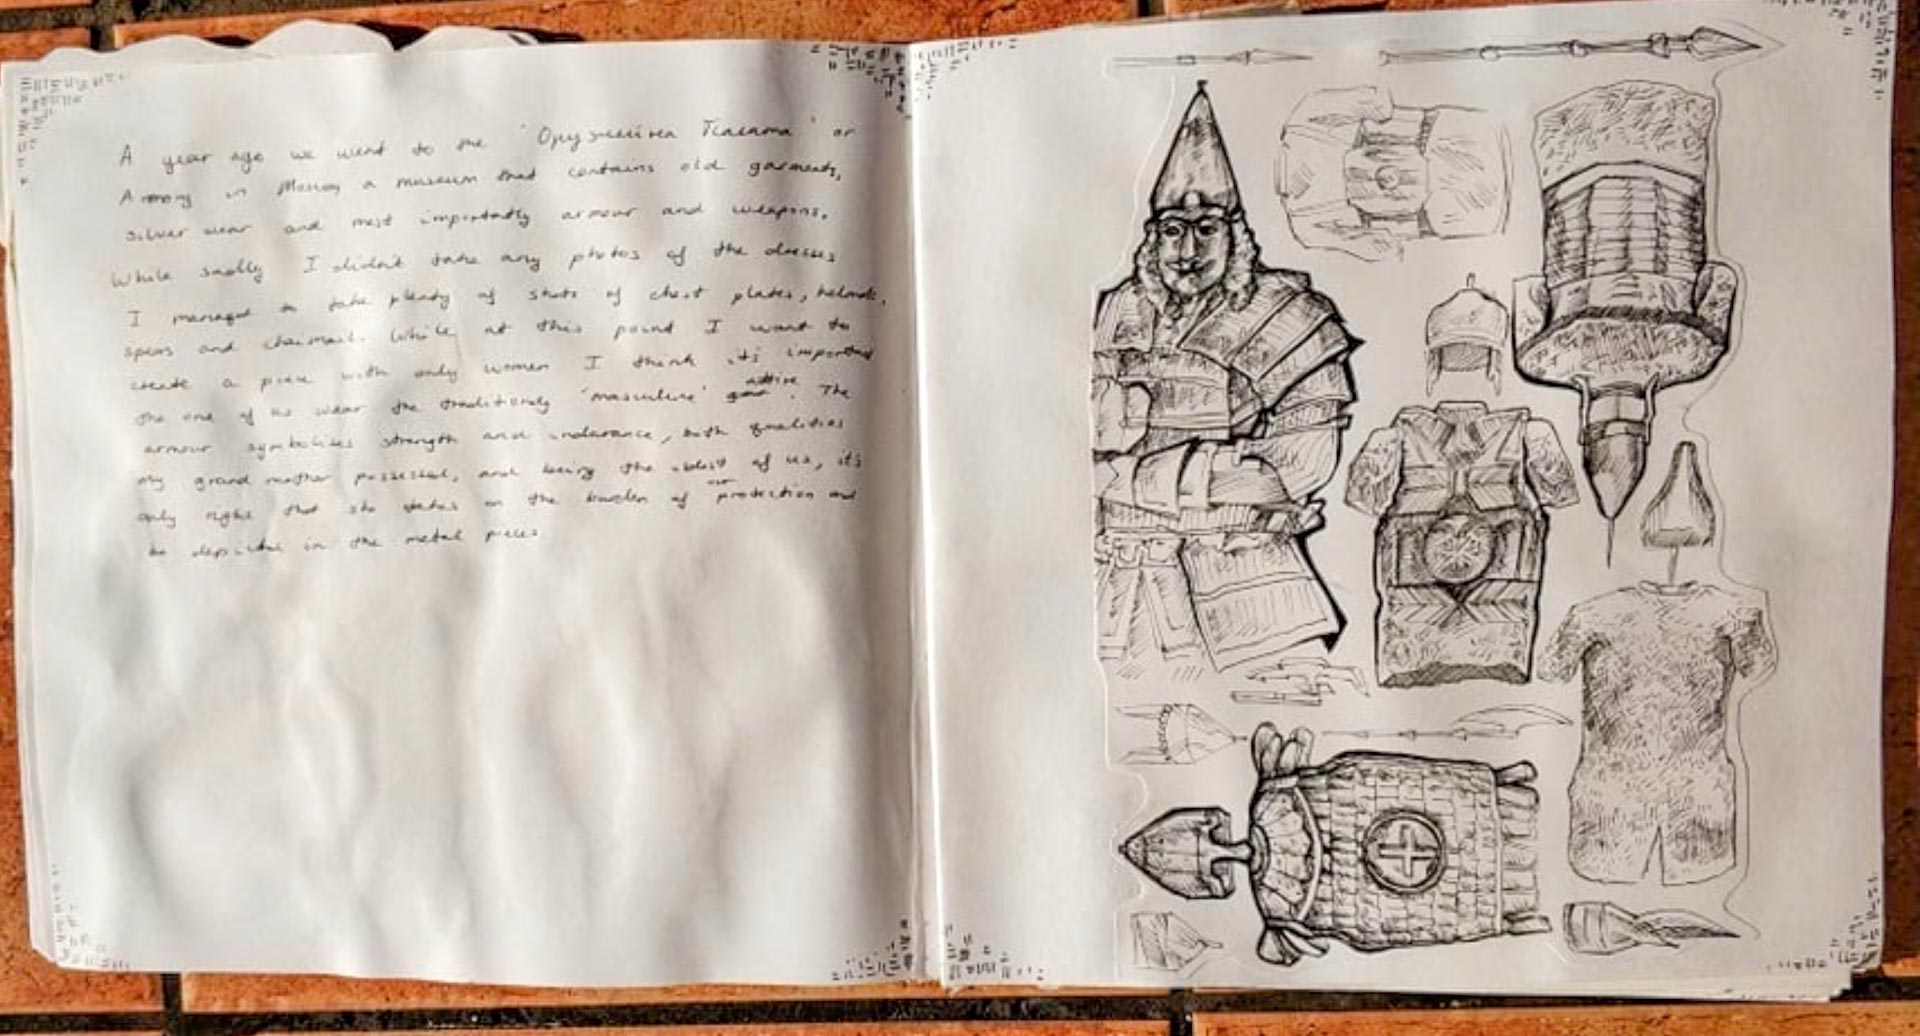 A year ago we went to the 'Оружейная Палата' or
Armory in Moscow a museum that contains old garments,
silver wear and most importatly armour and weapons.
While sadly I didn't take any photos of the dresses
I managed to take plenty of shots of chest plates, helmets,
spears and chainmail. While at this point I want to
create a piece with only women I think it's important
the one of us wear the traditionaly 'masculine' attire. The
armour symbolises strength and indurance, both qualities
my grand mother possessed, and being the oldest of us, it's
only right that she takes on the burden of our protection and
be depicted in the metal pieces